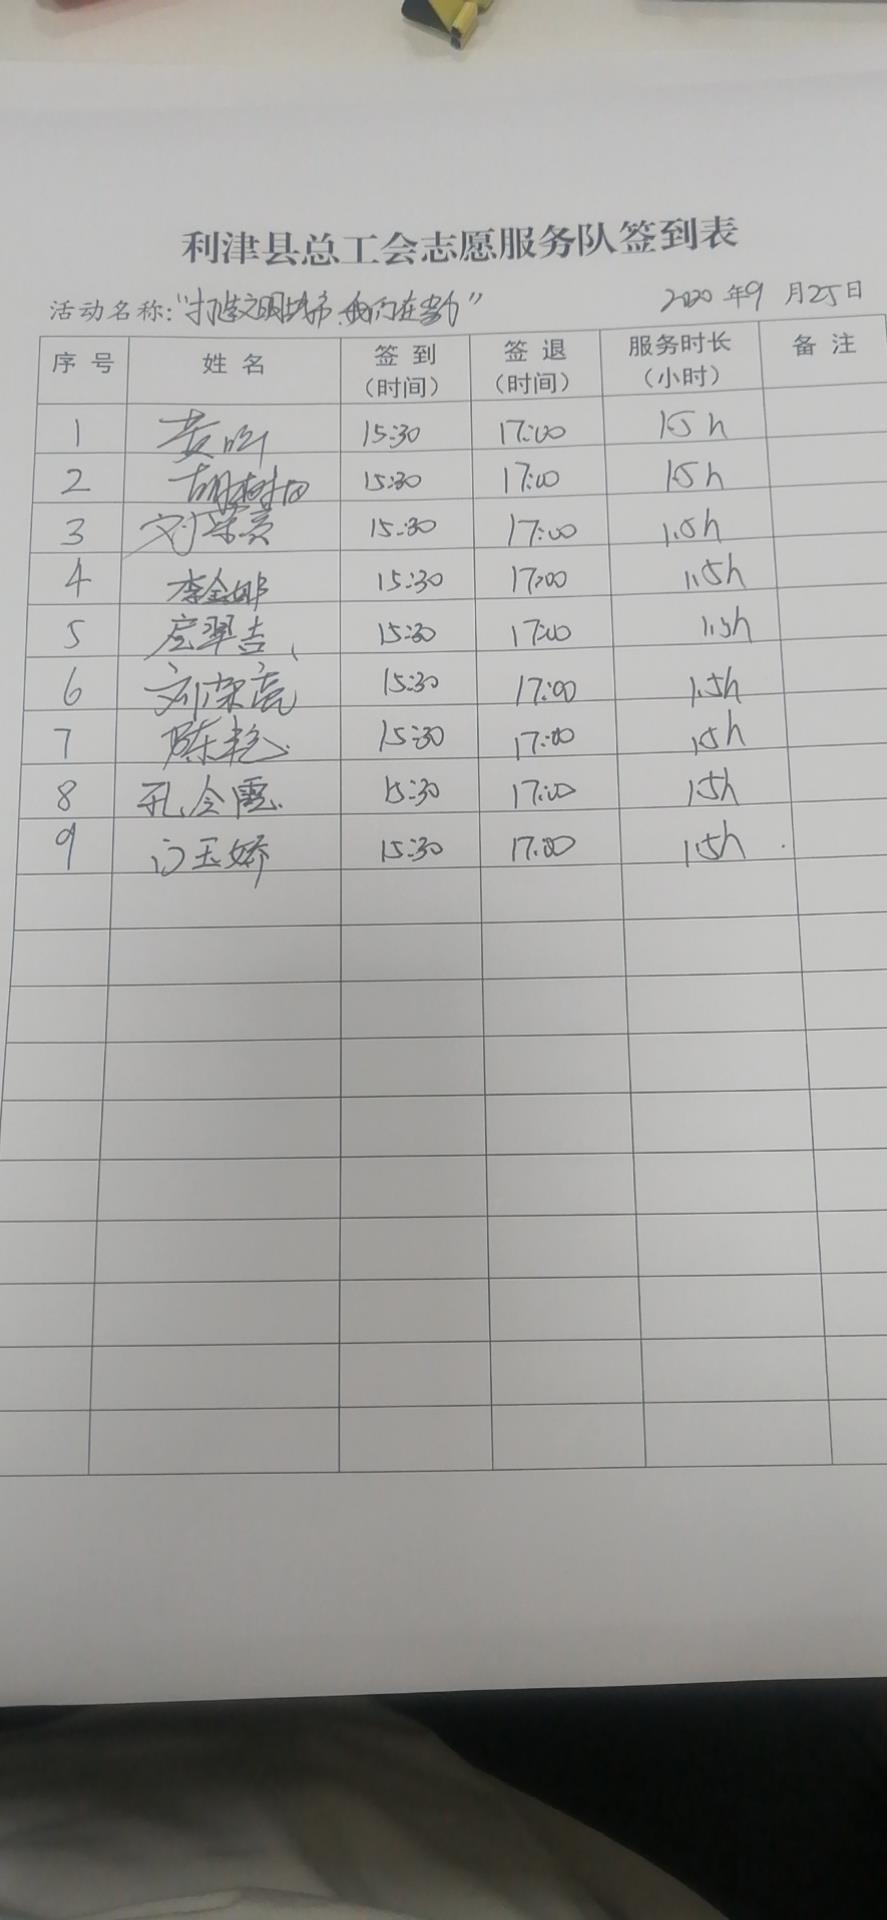 利津县总工会志愿服务队签到表
活动名称:"打造文明城市,我们在努力" 2020年9月25日
序号 姓名 签到(时间) 签退(时间) 服务时长(小时) 备注
1 黄 15:30 17:00 1.5h
2 胡树田 15:30 17:00 1.5h
3 15:30 17:00 1.5h
4 李金娜 15:30 17:00 1.5h
5 15:30 17:00 1.5h
6 刘荣亮 15:30 17:00 1.5h
7 陈艳 15:30 17:00 1.5h
8 孔令霞 15:30 17:00 1.5h
9 门玉娇 15:30 17:00 1.5h